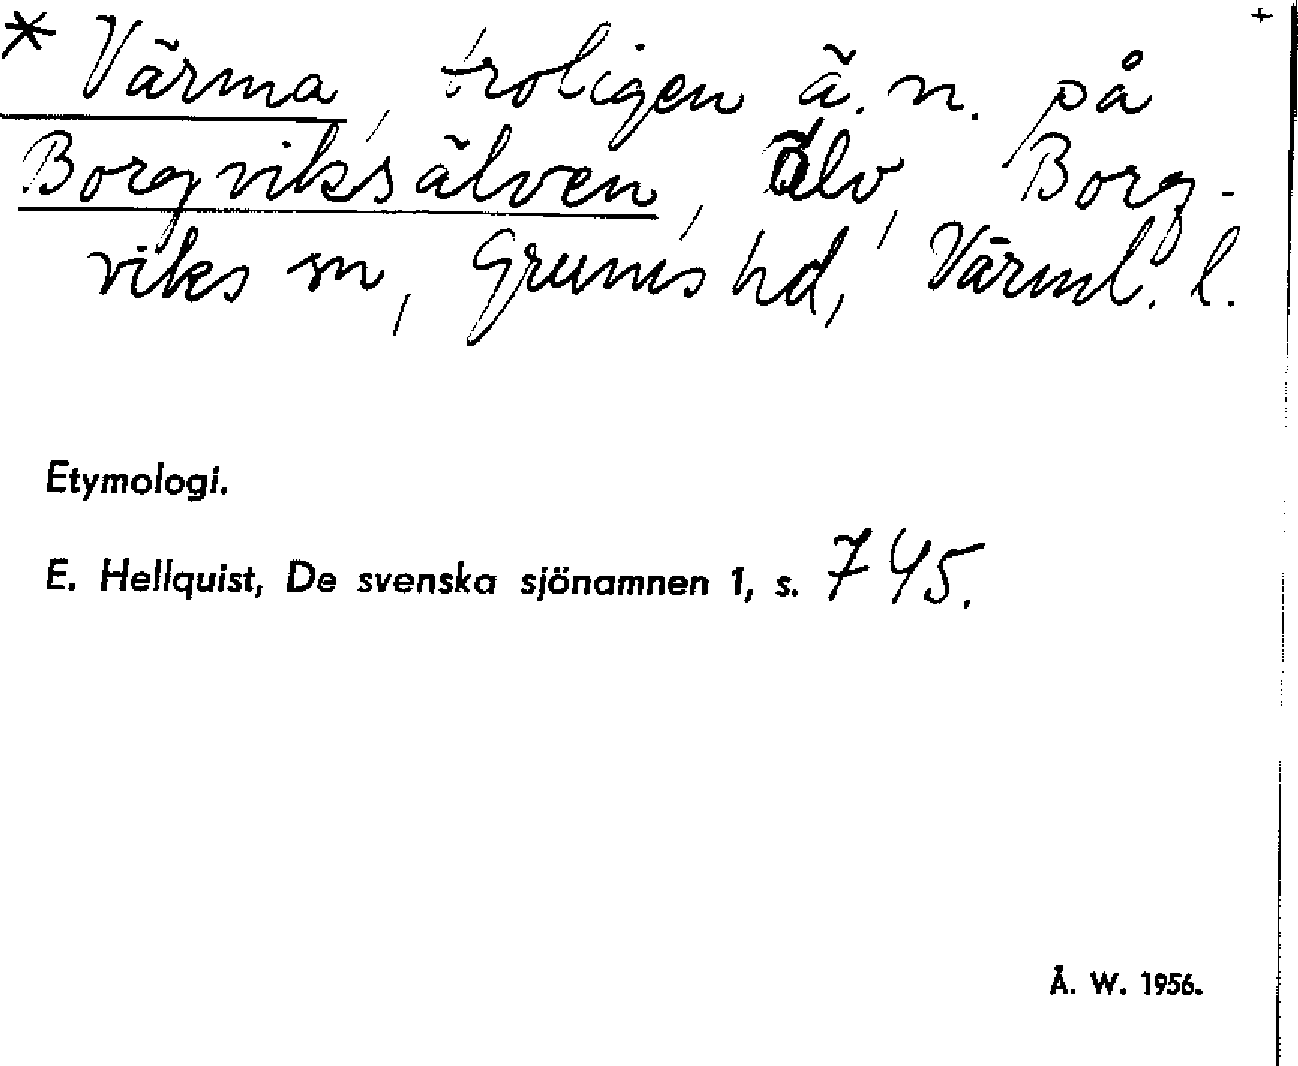 * Värma, troligen ä. n. på
Borgviksälven, älv, Borg-
viks sn, Grums hd, Värml. l.
Etymologi.
E. Hellquist, De svenska sjönamnen 1, s. 745.
Å. W. 1956.